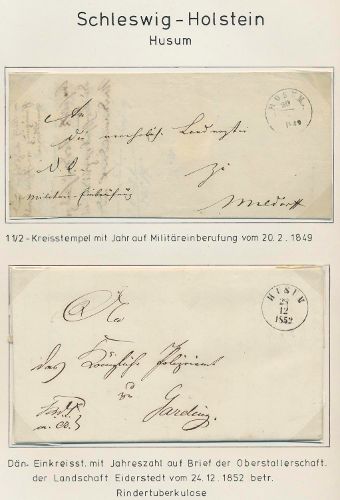 Schleswig-Holstein
Husum
An
die
Landvogtei
HUSUM.
20
2
1849
zu
Militair-Einberufung
Meldorf
1 1/2-Kreisstempel mit Jahr auf Militäreinberufung vom 20. 2. 1849
An
HUSUM
23
12
1852
das Königliche Polizeiamt
zu
Garding.
Dän. Einkreisst. mit Jahreszahl auf Brief der Oberstallerschaft.
der Landschaft Eiderstedt vom 24. 12. 1852 betr.
Rindertuberkulose